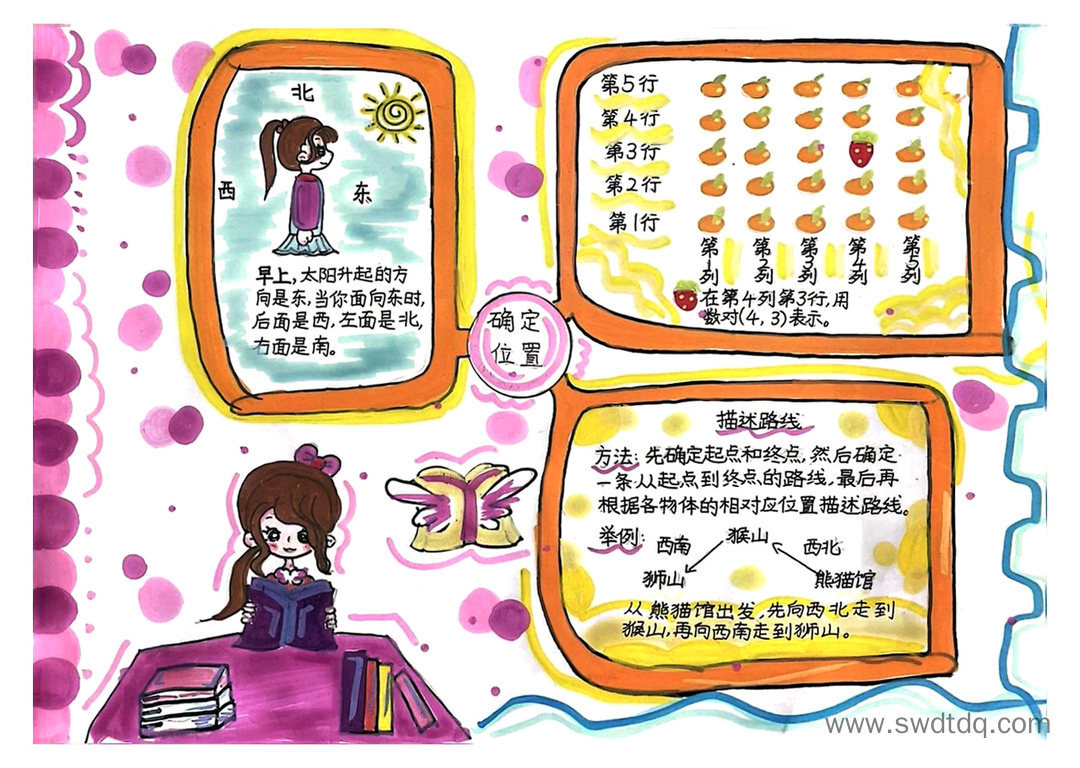 北
西
东
早上,太阳升起的方
向是东,当你面向东时,
后面是西,左面是北,
右面是南。
确定
位置
第5行
第4行
第3行
第2行
第1行
第1列
第2列
第3列
第4列
第5列
在第4列第3行,用
数对(4,3)表示。
描述路线
方法:先确定起点和终点,然后确定
一条从起点到终点的路线,最后再
根据各物体的相对应位置描述路线。
举例:
西南
猴山
西北
狮山
熊猫馆
从熊猫馆出发,先向西北走到
猴山,再向西南走到狮山。
www.swdtdq.com